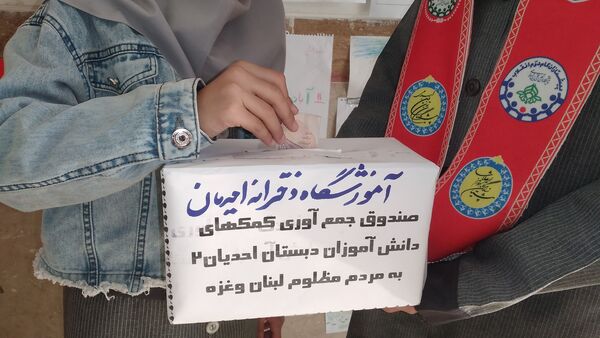 آموزشگاه دخترانه احدیان
صندوق جمع آوری کمکهای
دانش آموزان دبستان احدیان ۲
به مردم مظلوم لبنان وغزه